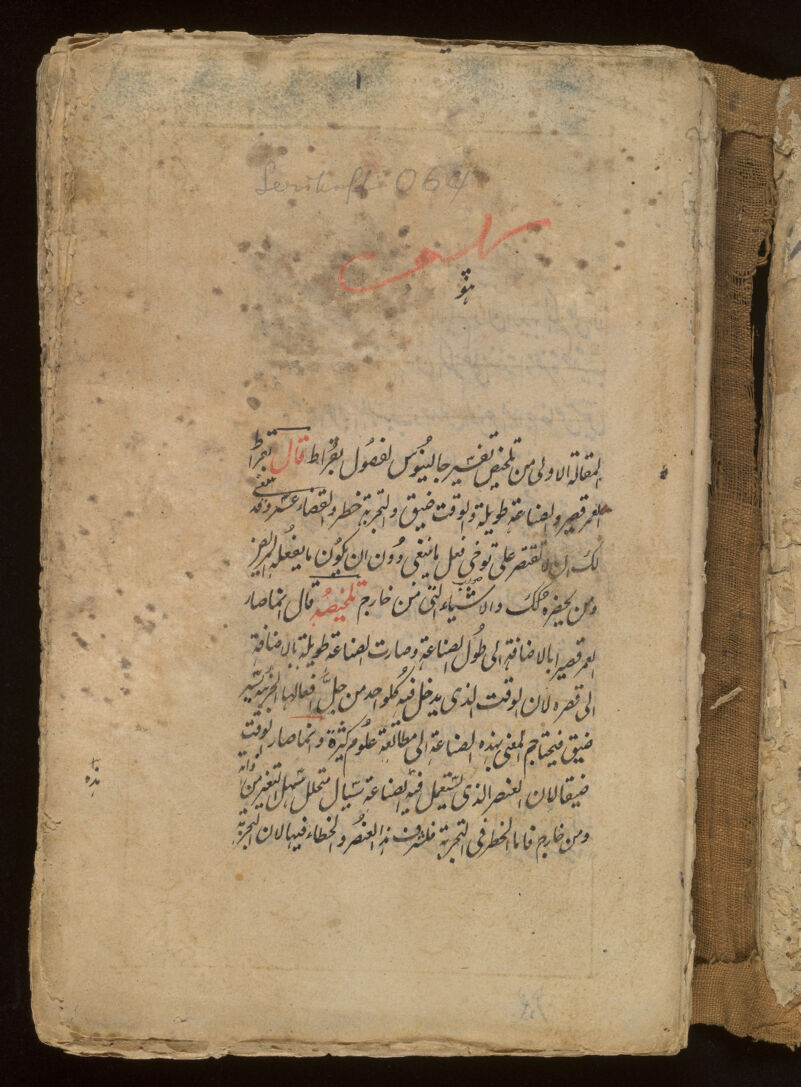 064
هو
المقالة الاولى من تلخيص تفسير جالينوس لفصول بقراط قال بقراط
العمر قصير والصناعة طويلة والوقت ضيق والتجربة خطر والقضاء عسر وقد ينبغي
لك ان لا تقتصر على توخي فعل ما ينبغي دون ان يكون ما يفعله المريض
ومن يحضره كذلك والاشياء التي من خارج تلخيصه قال انما صار
العمر قصيرا بالاضافة الى طول الصناعة وصارت الصناعة طويلة بالاضافة
الى قصره لان الوقت الذي يدخل فيه كل واحد من جل افعالها الجزئية يسير
ضيق فيحتاج المعنى بهذه الصناعة الى مطالعة علوم كثيرة وانما صار الوقت
ضيقا لان العنصر الذي تستعمل فيه الصناعة سيال متحلل سهل التغير من ذاته
ومن خارج فاما الخطر في التجربة فلشرف هذا العنصر والخطاء فيها لان التجربة
هذه